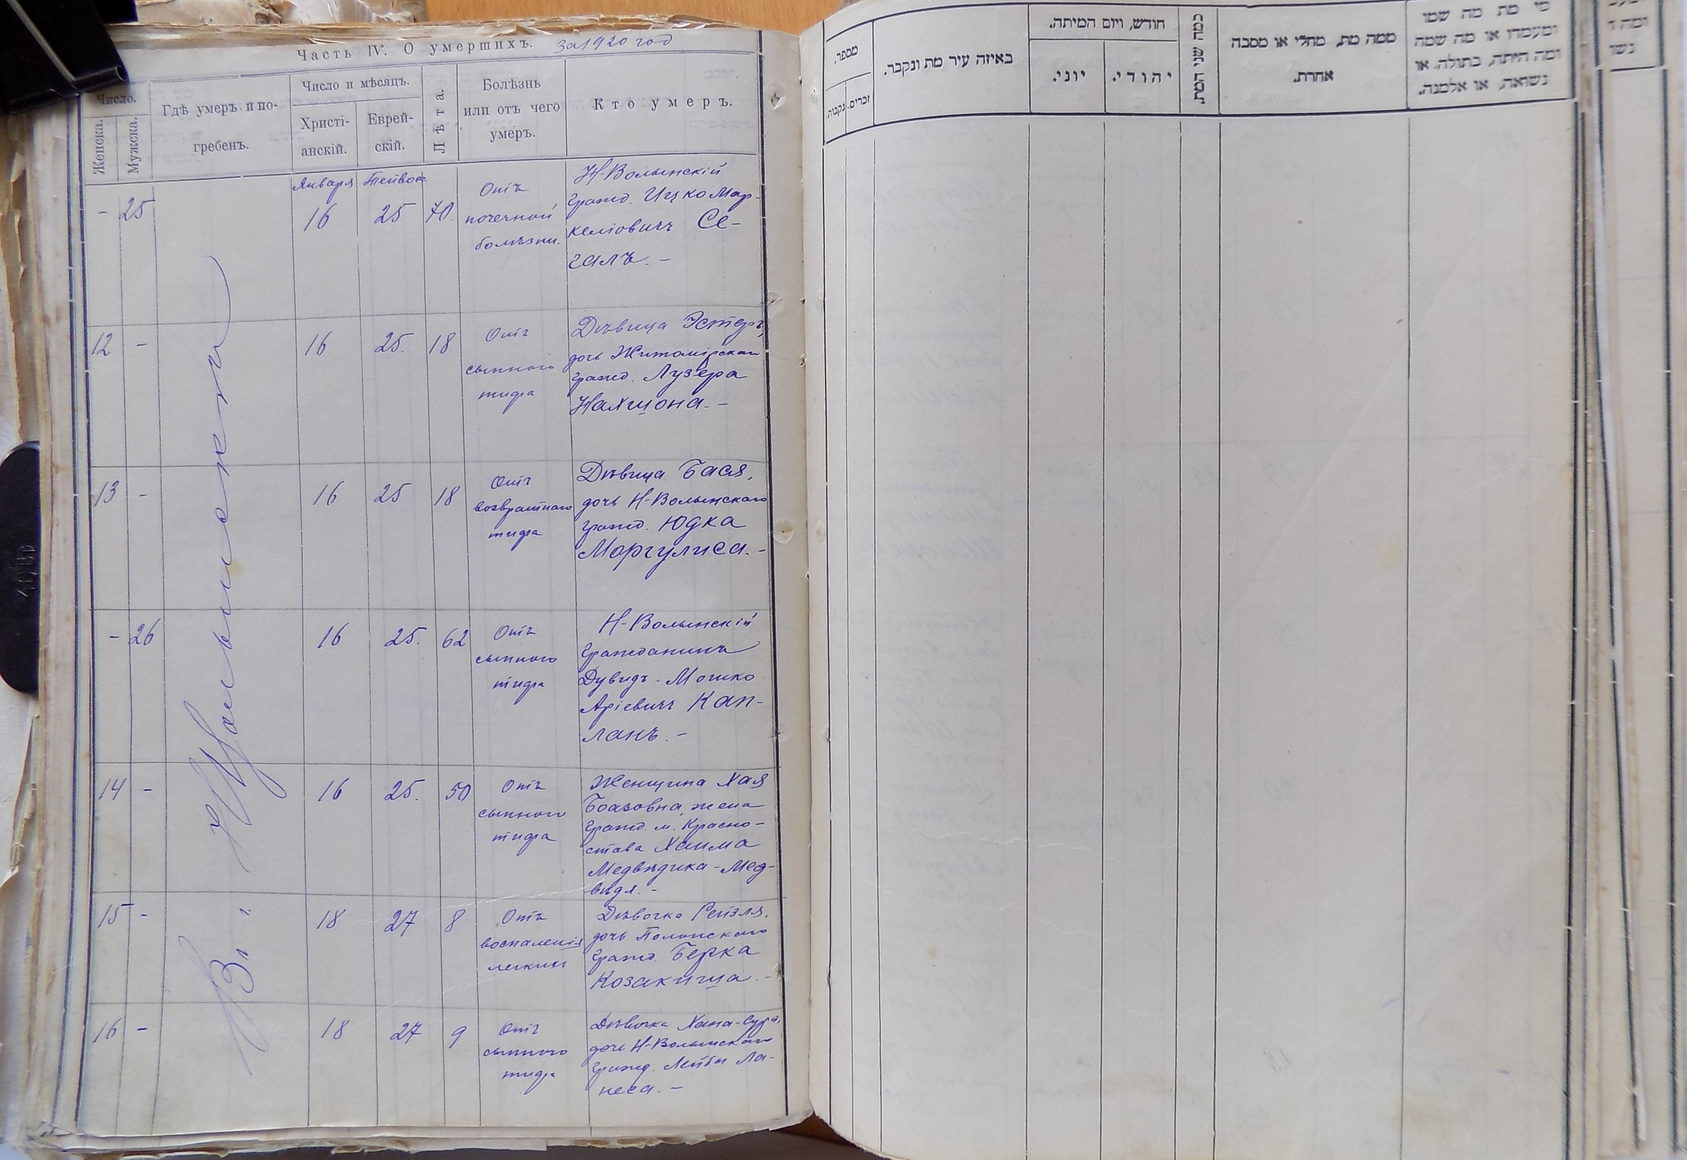 Часть IV. О умершихъ. За 1920 год
Число.
Женска.
Мужска.
Гдѣ умеръ и по-
гребенъ.
Число и мѣсяцъ.
Христі-
анскій.
Еврей-
скій.
Лѣта.
Болѣзнь
или отъ чего
умеръ.
Кто умеръ.
- 25
Января
16
Тейвес
25
70
Отъ
почечной
болѣзни.
Н-Волынскій
гражд. Ицко Мар-
келіовичъ Се-
галъ. -
12 -
16
25.
18
Отъ
сыпного
тифа
Дѣвица Эстеръ,
дочь Житомірскаго
гражд. Лузера
Нахшона. -
13 -
16
25
18
Отъ
возвратного
тифа
Дѣвица Бася,
дочь Н-Волынскаго
гражд. Юдка
Моргулиса. -
- 26
16
25.
62
Отъ
сыпного
тифа
Н-Волынскій
гражданинъ
Дувидъ-Мошко
Аріевичъ Кап-
ланъ. -
14 -
16
25.
50
Отъ
сыпного
тифа
Женщина Хая
Боазовна, жена
гражд. м. Красно-
става Хаима
Медвѣдика-Мед-
вѣдя. -
15 -
18
27
8
Отъ
воспаленія
легкихъ
Дѣвочка Рейзля,
дочь Полонского
гражд. Берка
Козакица. -
16 -
18
27
9
Отъ
сыпного
тифа
Дѣвочка Хана-Сура,
дочь Н-Волынскаго
гражд. Лейбы Ла-
песа. -
Въ Н
מספר.
זכרים.
נקבות.
באיזה עיר מת ונקבר.
חודש, ויום המיתה.
יוני.
יהודי.
כמה שני המת
ממה מת, מחלי או מסבה
אחרת.
מי מת מה שמו
ומעמדו או מה שמה
ומה היתה, בתולה, או
נשואה, או אלמנה.